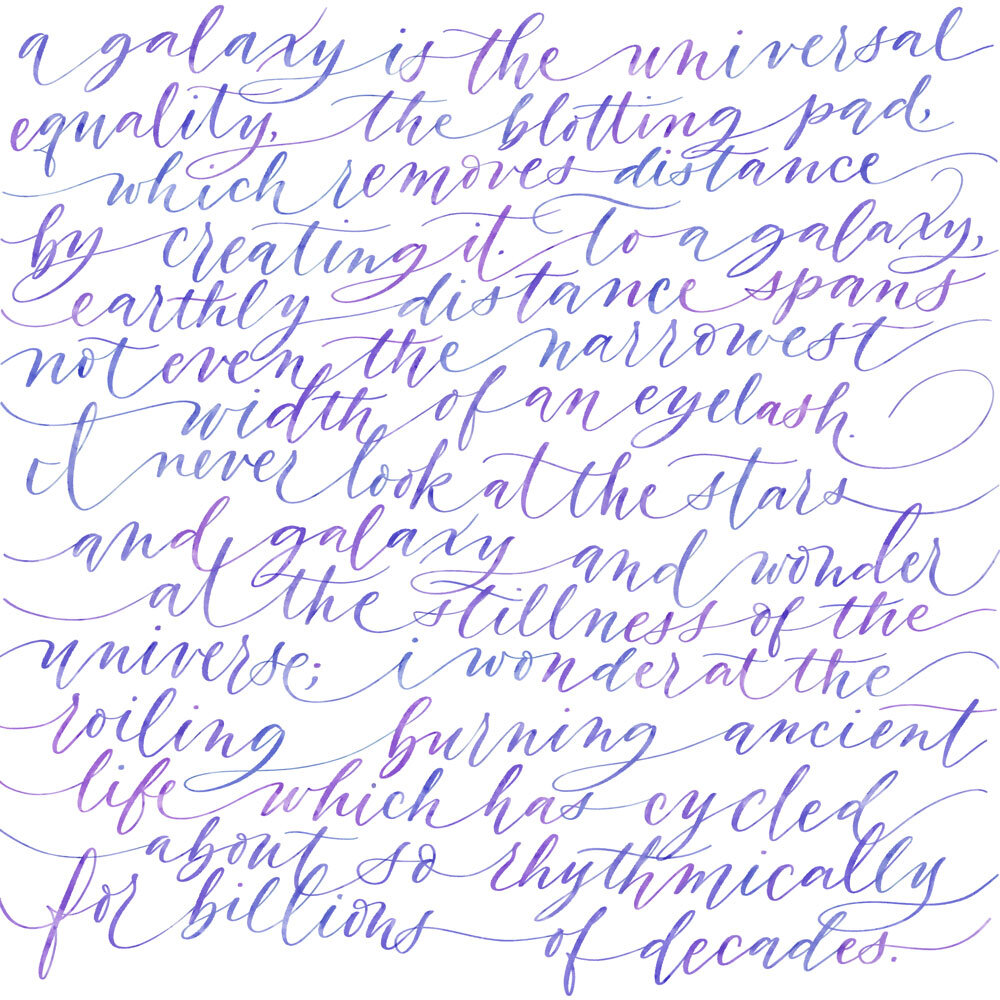 a galaxy is the universal
equality, the blotting pad,
which removes distance
by creating it. To a galaxy,
earthly distance spans
not even the narrowest
width of an eyelash.
I never look at the stars
and galaxy and wonder
at the stillness of the
universe; i wonder at the
roiling burning ancient
life which has cycled
about so rhythmically
for billions of decades.